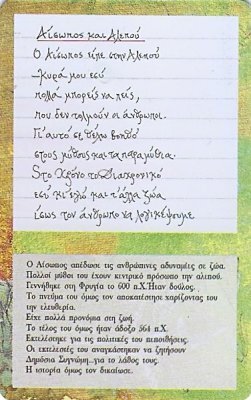 Αίσωπος και Αλεπού
Ο Αίσωπος είπε στην Αλεπού
-Κυρά μου εσύ
πολλά μπορείς να πεις,
που δεν τολμούν οι άνθρωποι.
Γι' αυτό σε θέλω βοηθό
στους μύθους και τα παραμύθια.
Στο Χρόνο το Διαχρονικό
εσύ κι εγώ και τ' άλλα ζώα
ίσως τον άνθρωπο να λογικέψουμε
Ο Αίσωπος απέδωσε τις ανθρώπινες αδυναμίες σε ζώα.
Πολλοί μύθοι του έχουν κεντρικό πρόσωπο την αλεπού.
Γεννήθηκε στη Φρυγία το 600 π.Χ. Ήταν δούλος.
Το πνεύμα του όμως τον αποκατέστησε χαρίζοντας του
την ελευθερία.
Είχε πολλά προνόμια στη ζωή.
Το τέλος του όμως ήταν άδοξο 564 π.Χ.
Εκτελέσθηκε για τις πολιτικές του πεποιθήσεις.
Οι εκτελεστές του αναγκάστηκαν να ζητήσουν
Δημόσια Συγνώμη...για το λάθος τους.
Η ιστορία όμως τον δικαίωσε.